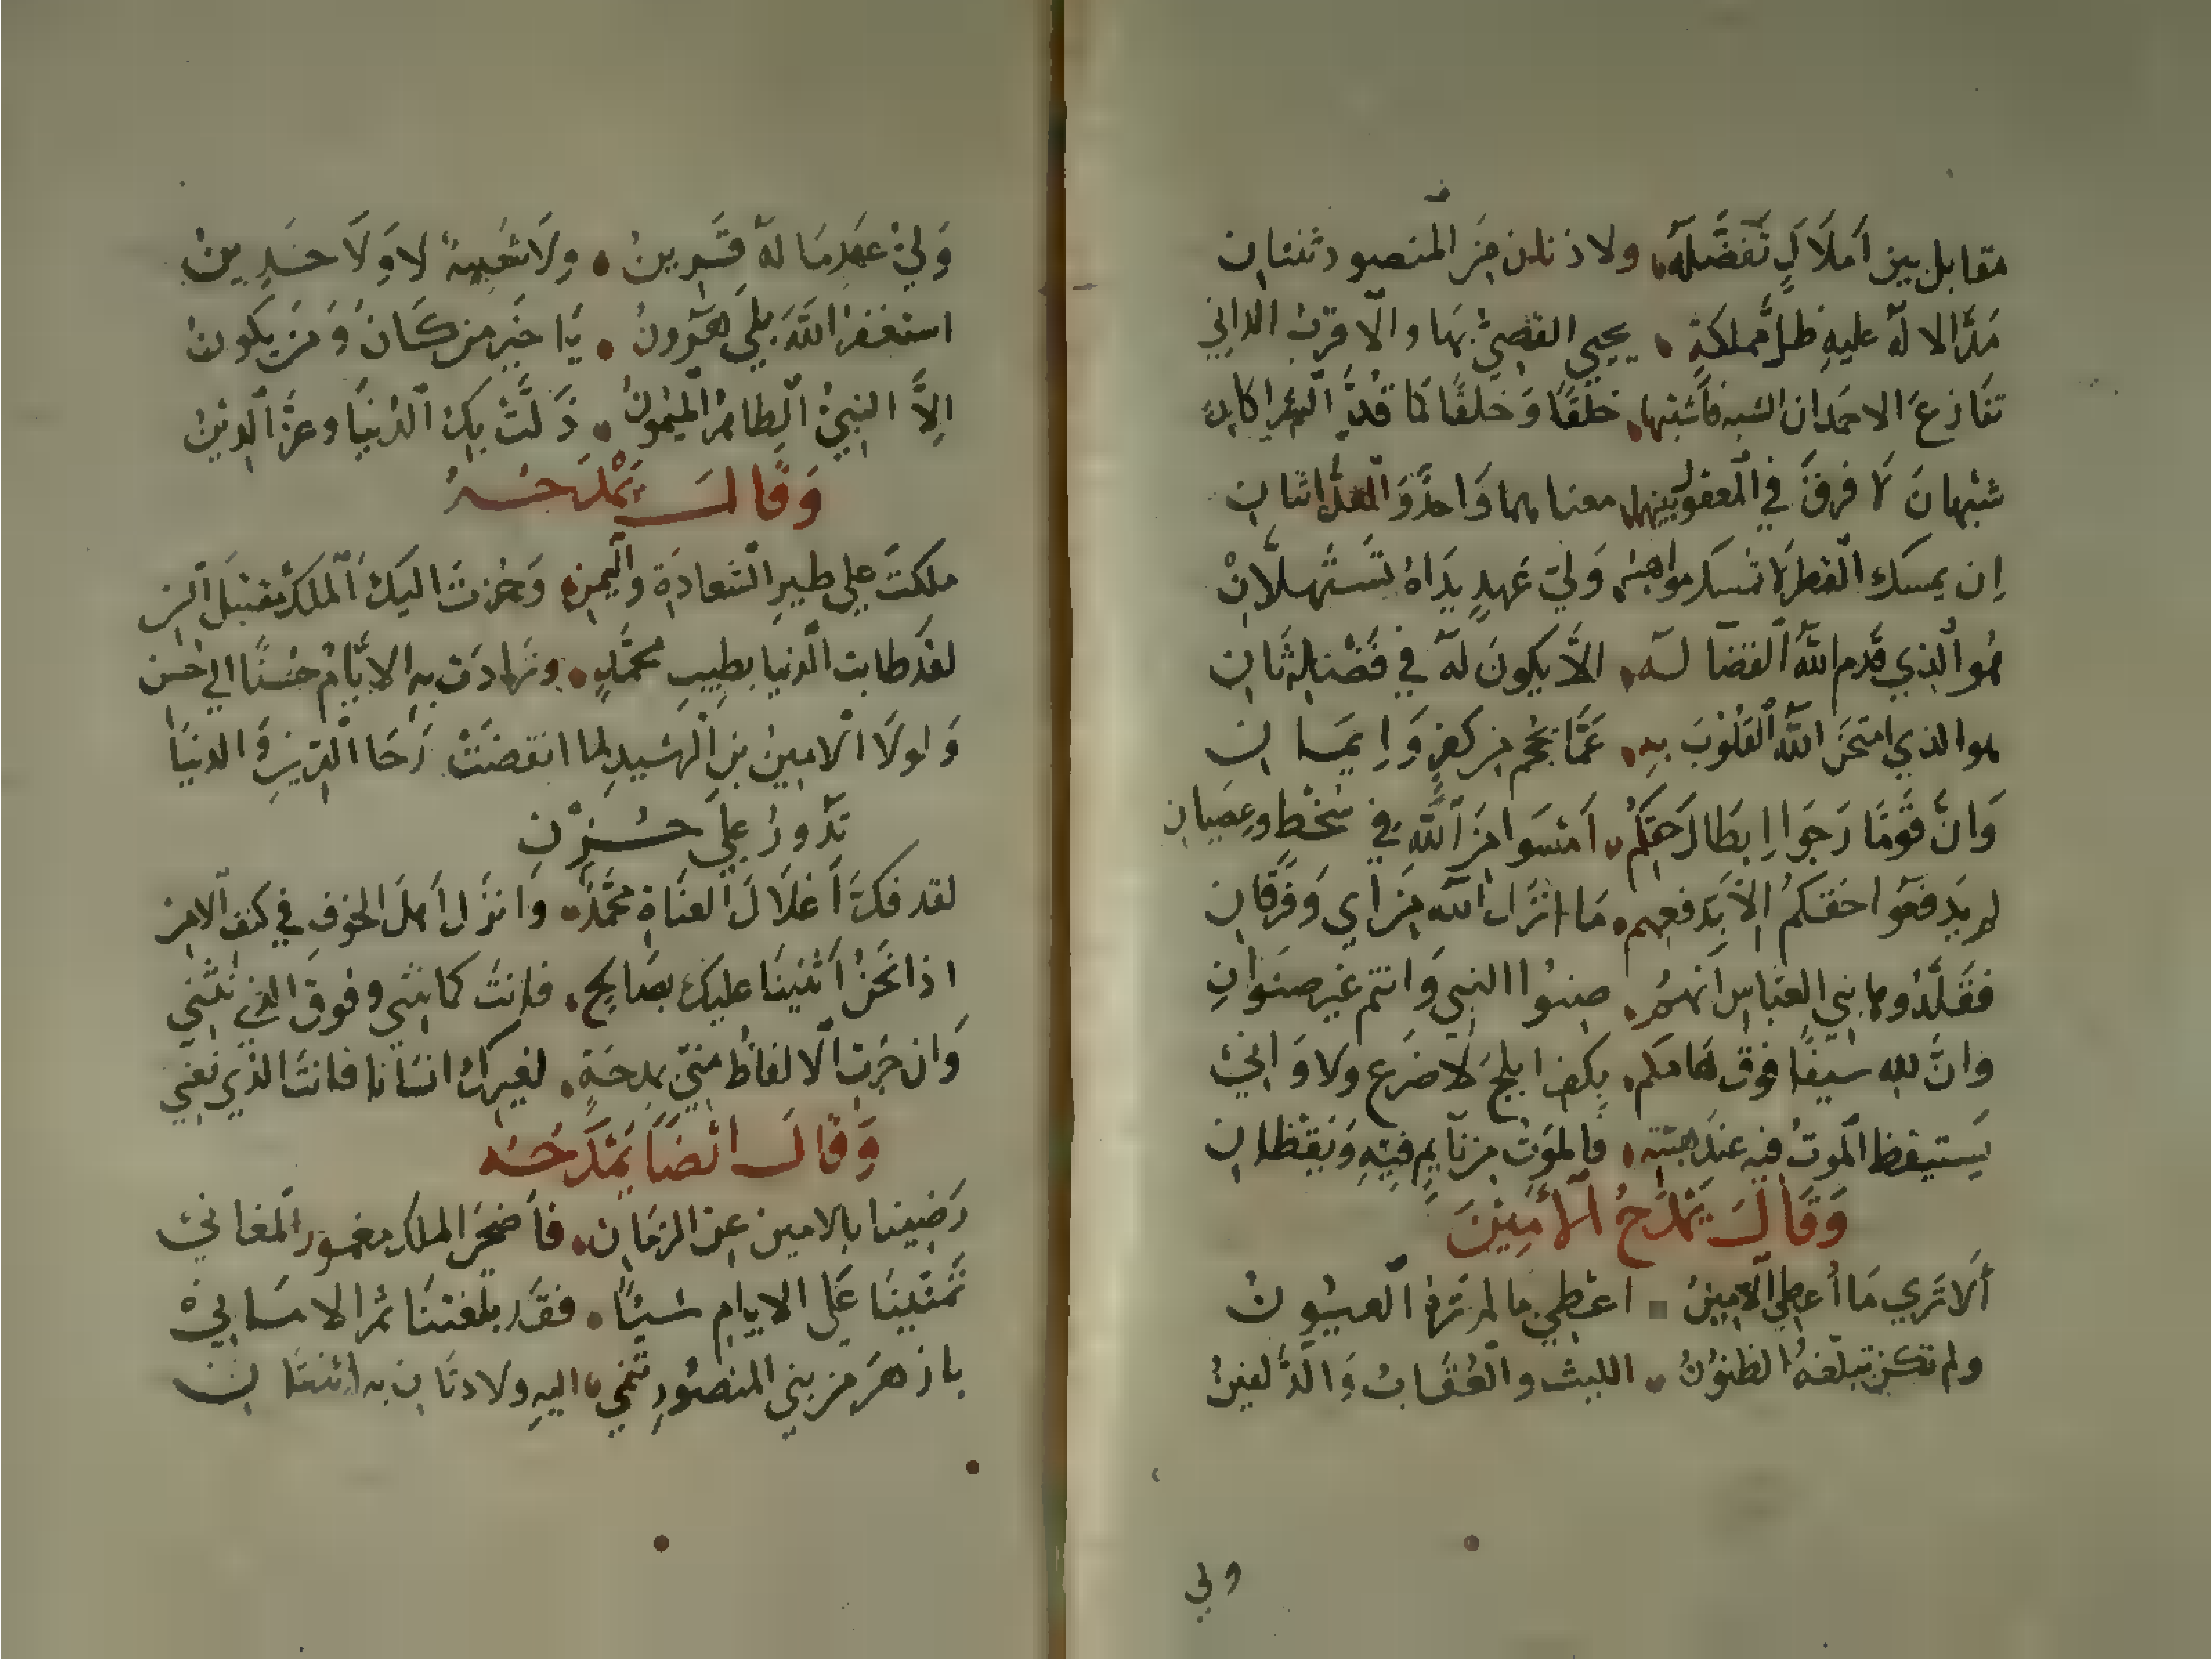 مقابل بين أملاك تفضله ولادتان من المنصور ثنتان
مد الاله عليه ظل مملكة يحيي القصي بها والاقرب الداني
تنازع الاحمدان الشبه فاشتبها خلقا وخلقا كما قد الشراكان
شبهان لا فرق في المعقول بينهما معناهما واحد والعدة اثنان
إن يمسك القطر لا تمسك مواهبه ولي عهد يداه تستهلان
هو الذي قدم الله القضا له الا يكون له في فضله ثان
هو الذي امتحن الله القلوب به عما تجمجم من كفر وإيمان
وان قوما رجوا إبطال حقكم امسوا من الله في سخط وعصيان
لم يدفعوا حقكم الا بدفعهم ما انزل الله من اي وفرقان
فقلدوها بني العباس انهم صنوا النبي وانتم غير صنوان
وان لله سيفا فوق هامكم بكف ابلج لا ضرع ولا واني
يستيقظ الموت فيه عند هبته فالموت من نايم فيه ويقظان
وقال يمدح الأمين
ألا ترى ما أعطي الامين اعطي ما لم تره العيون
ولم تكن تبلغه الظنون الليث والعقاب والدلفين
ولي
ولي عهد ما له قرين ولا شبيه لا ولا خدين
استغفر الله بلى هرون يا خير من كان ومن يكون
إلا النبي الطاهر الميمون ذلت بك الدنيا وعز الدين
وقال يمدحه
ملكت على طير السعادة واليمن وحزت اليك الملك مقتبل السن
لقد طابت الدنيا بطيب محمد وزادت به الايام حسنا الى حسن
ولولا الامين بن الرشيد لما انقضت رحا الدين والدنيا
تدور على حزن
لقد فك أغلال العناة محمد وانزل اهل الخوف في كنف الامن
اذا نحن اثنينا عليك بصالح فانت كما نثني وفوق الذي نثني
وان جرت الالفاظ مني بمدحة لغيرك انسانا فانت الذي نعني
وقال ايضا يمدحه
رضينا بالامين عن الزمان فأضحى الملك معمور المغاني
تمنينا على الايام شيئا فقد بلغننا تلك الاماني
بازهر من بني المنصور تنمي اليه ولادتان به اثنتان